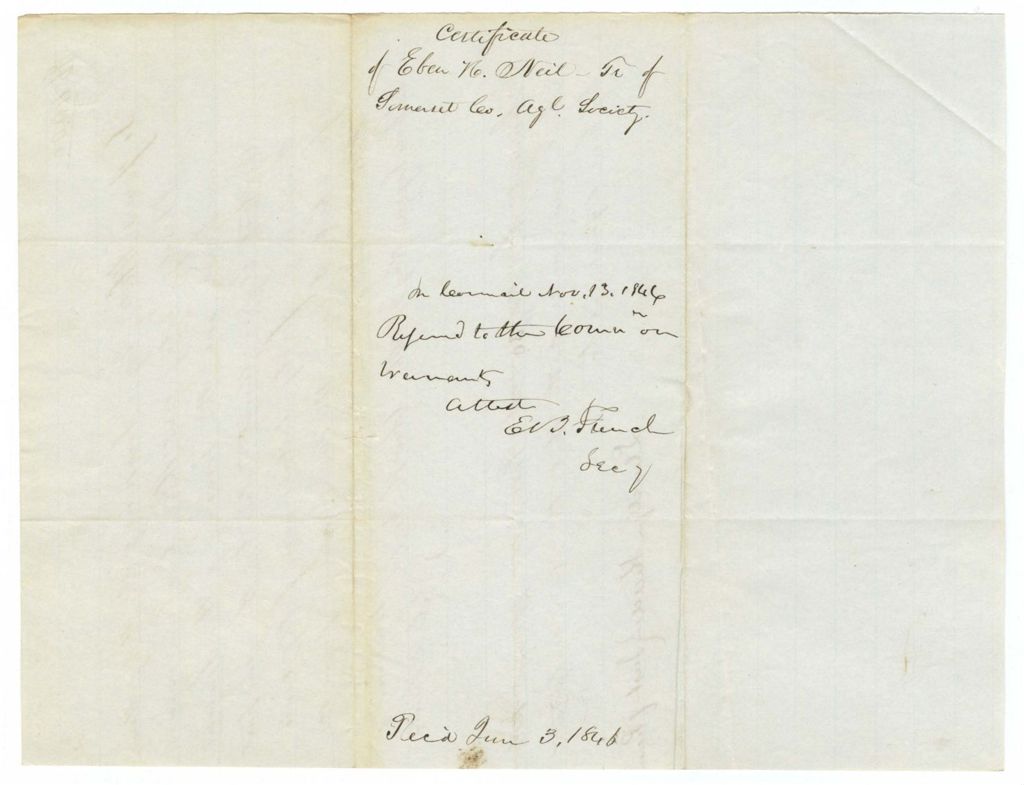 Certificate
of Eben H. Neil - Tr of
Somerset Co. Agl. Society.
In Council Nov. 13. 1846
Referred to the Comm on
Warrants
Attest
E. B. French
Secy
Rec'd June 3, 1846